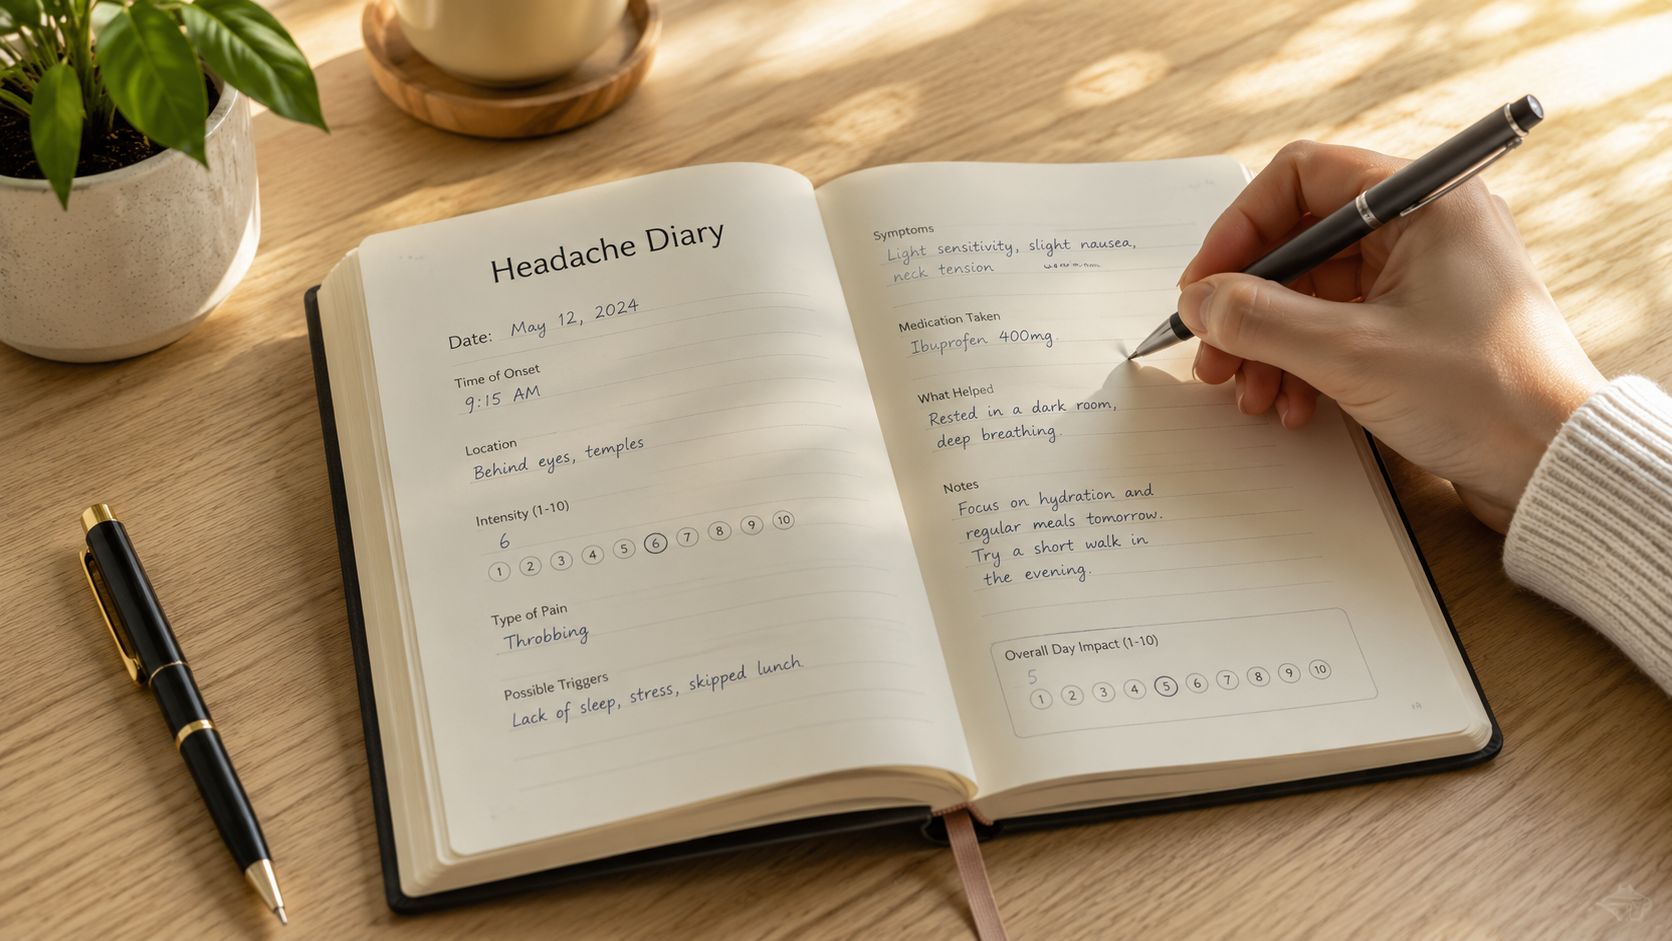 Headache Diary
Date: May 12, 2024
Time of Onset
9:15 AM
Location
Behind eyes, temples
Intensity (1-10)
6
1 2 3 4 5 6 7 8 9 10
Type of Pain
Throbbing
Possible Triggers
Lack of sleep, stress, skipped lunch
Symptoms
Light sensitivity, slight nausea,
neck tension
Medication Taken
Ibuprofen 400mg.
What Helped
Rested in a dark room,
deep breathing.
Notes
Focus on hydration and
regular meals tomorrow.
Try a short walk in
the evening.
Overall Day Impact (1-10)
5
1 2 3 4 5 6 7 8 9 10